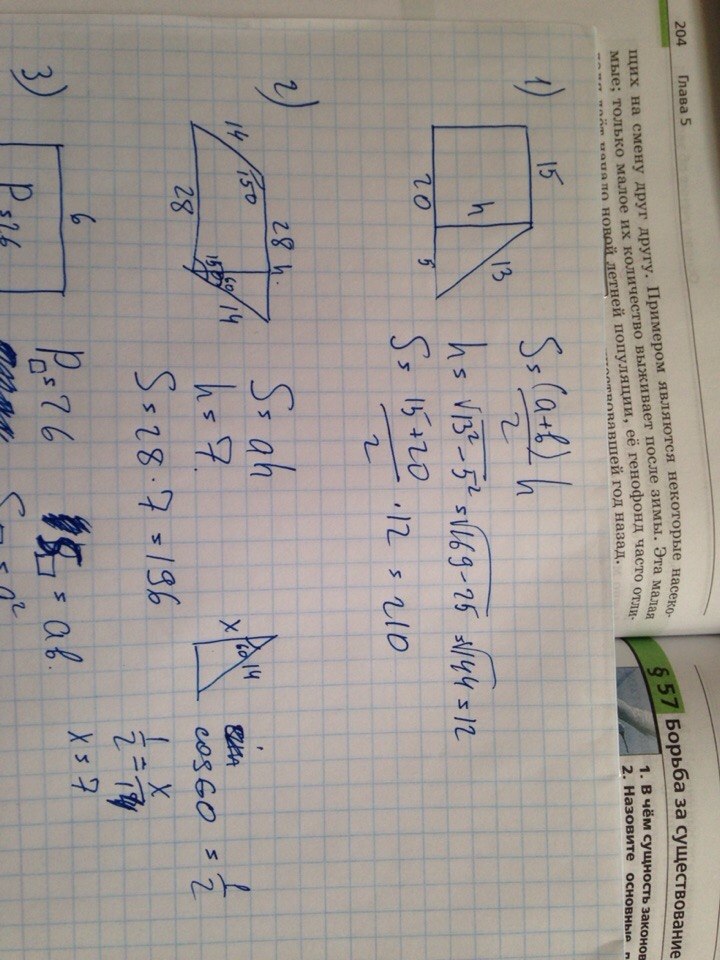 204 Глава 5
щих на смену друг другу. Примером являются некоторые насеко-
мые; только малое их количество выживает после зимы. Эта малая
новой летней популяции, её генофонд часто отли-
ствовавшей год назад.
§ 57 Борьба за существование
1. В чём сущность законов
2. Назовите основные
1)
15
h
13
20
5
S = (a+b)/2 h
h = √13² - 5² = √169-25 = √144 = 12
S = 15+20/2 · 12 = 210
2)
14
150
28
h
28
150
60
14
S = ah
h = 7.
S = 28 · 7 = 196
x
60
14
cos60 = 1/2
1/2 = x/14
x = 7
3)
6
P = 26
P□ = 26
S□ = ab.
S□ = a²